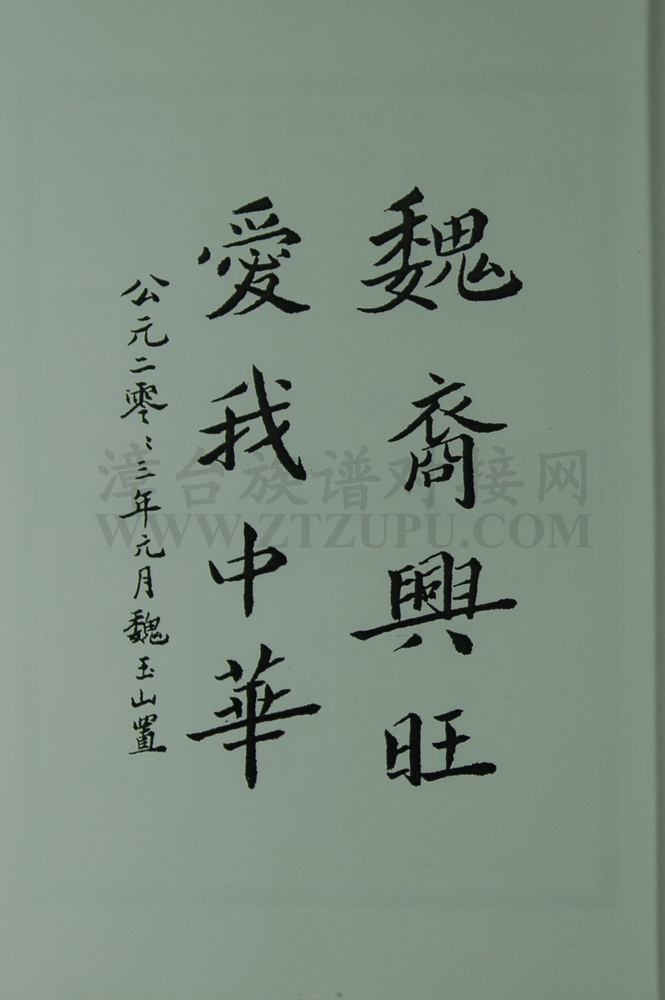 魏裔興旺
愛我中華
公元二零〻三年元月魏玉山置
漳台族谱对接网
WWW.ZTZUPU.COM